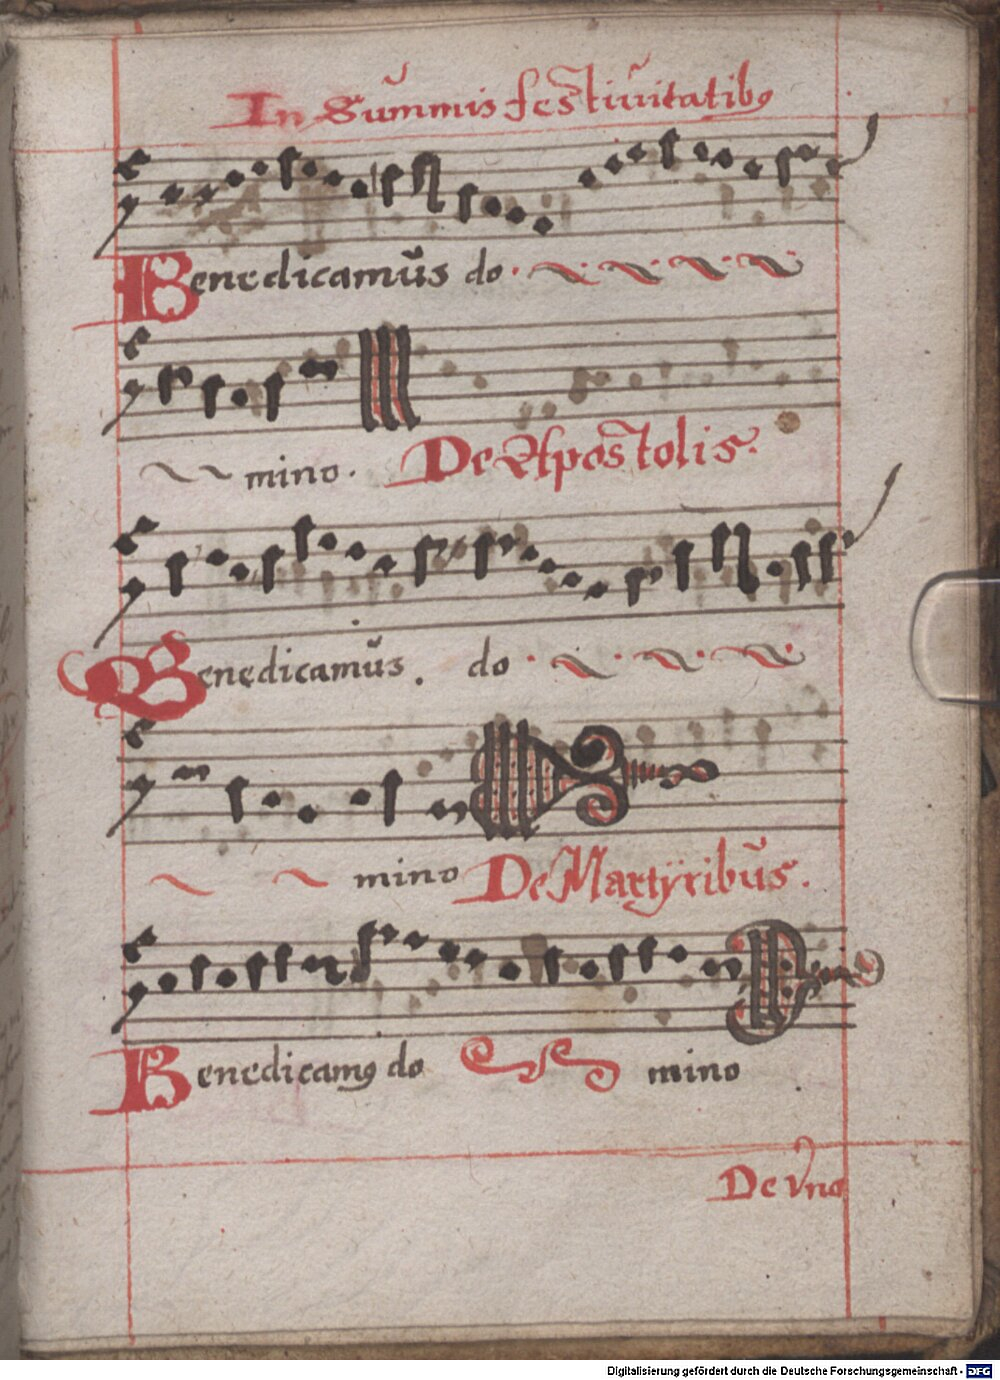 In Summis festiuitatibꝰ
Benedicamus do
mino. De Apostolis.
Benedicamus. do
mino De Martÿribus.
Benedicamꝰ do mino
De vno
Digitalisierung gefördert durch die Deutsche Forschungsgemeinschaft - DFG